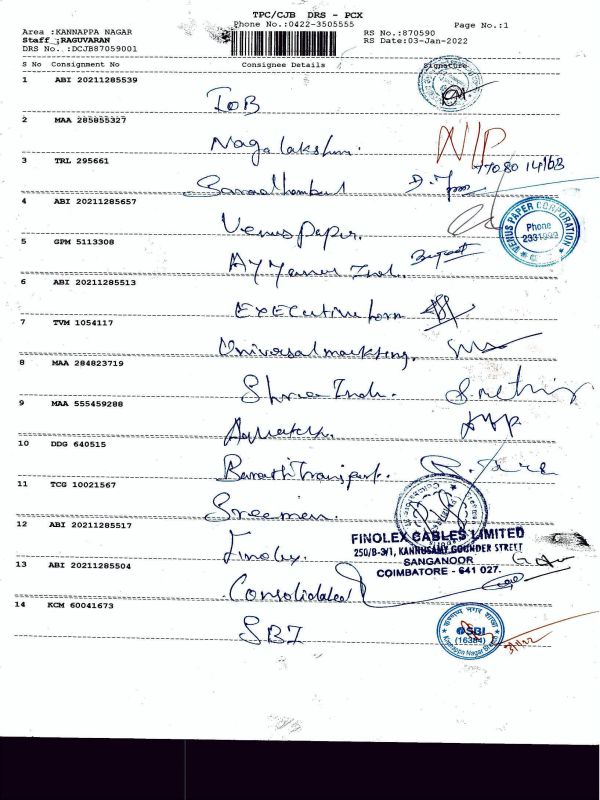 TPC/CJB DRS - PCX
Phone No.:0422-3505555
Page No.:1
Area :KANNAPPA NAGAR
Staff :RAGUVARAN
DRS No. :DCJB87059001
RS No.:870590
RS Date:03-Jan-2022
S No Consignment No Consignee Details Signature
1 ABI 20211285539
IOB
2 MAA 285855327
Nagalakshmi.
N/P
3 TRL 295661
77080 14163
4 ABI 20211285657
Venus paper.
VENUS PAPER CORPORATION
Phone
5 GPM 5113308
Ind.
6 ABI 20211285513
EXECutive form
7 TVM 1054117
Universal markting.
8 MAA 284823719
Shree Ind.
9 MAA 555459288
10 DDG 640515
Barathi Transport.
11 TCG 10021567
12 ABI 20211285517
Finolex.
FINOLEX CABLES LIMITED
250/B-3/1, KANNUSAMY GOUNDER STREET
SANGANOOR
COIMBATORE - 641 027.
13 ABI 20211285504
Consolidated
14 KCM 60041673
SBI
SBI
(16384)
Kannappa Nagar
3/1/22